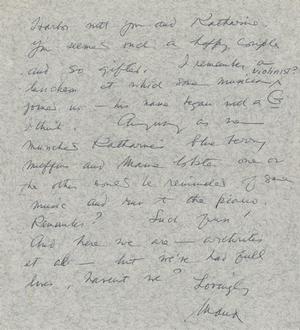 Harbor with you and Katharine.
You seemed such a happy couple
and so gifted. I remember a
violinist?
luncheon at which some musician
joined us — his name began with a G
I think. Anyway as we
munched Katharine's blue berry
muffins and Maine lobster one or
the other would be reminded of some
music and run to the piano.
Remember? Such fun!
And here we are — arthritis
et al — but we've had full
lives, haven't we? Lovingly